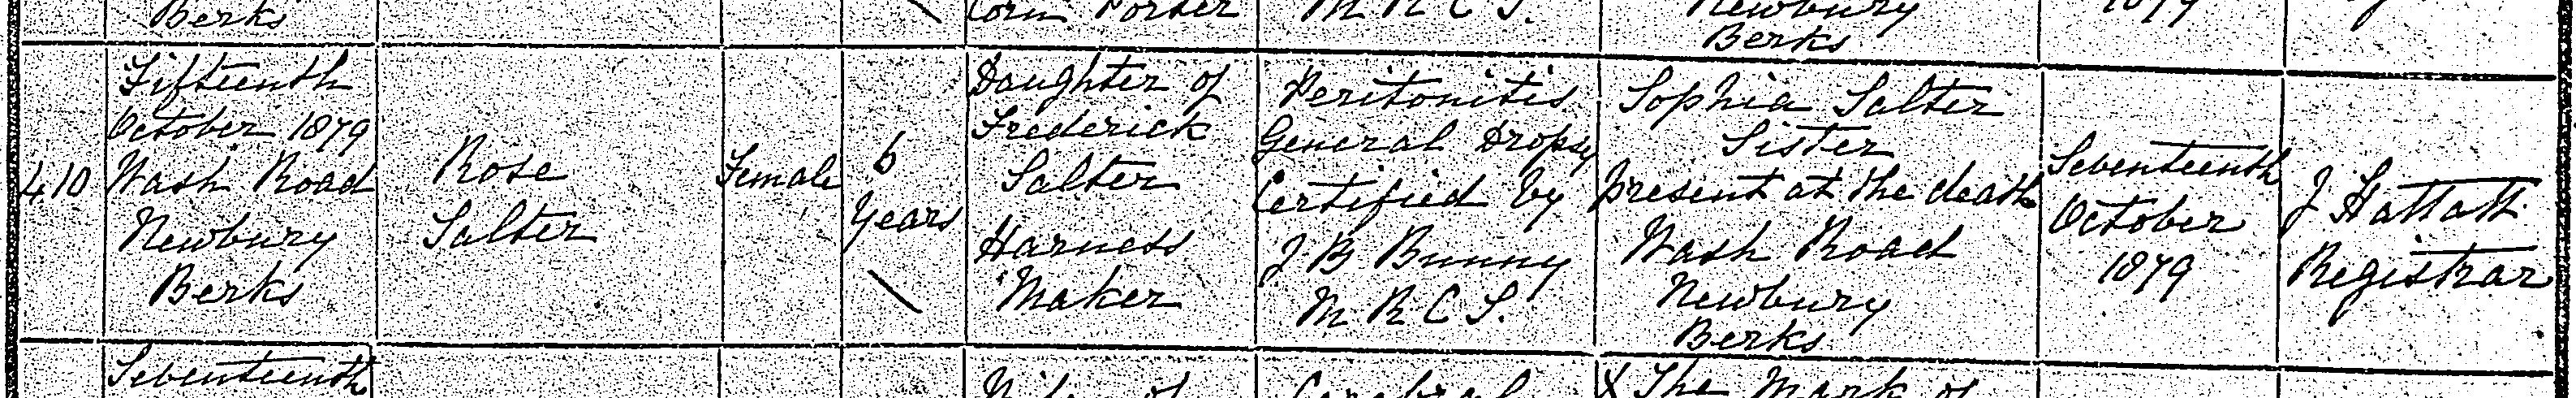 Berks
Corn Porter
M R C S.
Newbury
Berks
1879
410
Fifteenth
October 1879
Wash Road
Newbury
Berks
Rose
Salter
Female
6
Years
Daughter of
Frederick
Salter
Harness
Maker
Peritonitis
General Dropsy
Certified by
J B Bunny
M R C S.
Sophia Salter
Sister
present at the death
Wash Road
Newbury
Berks
Seventeenth
October
1879
J Hattatt
Registrar
Seventeenth
of
Cerebral
X The Mark of